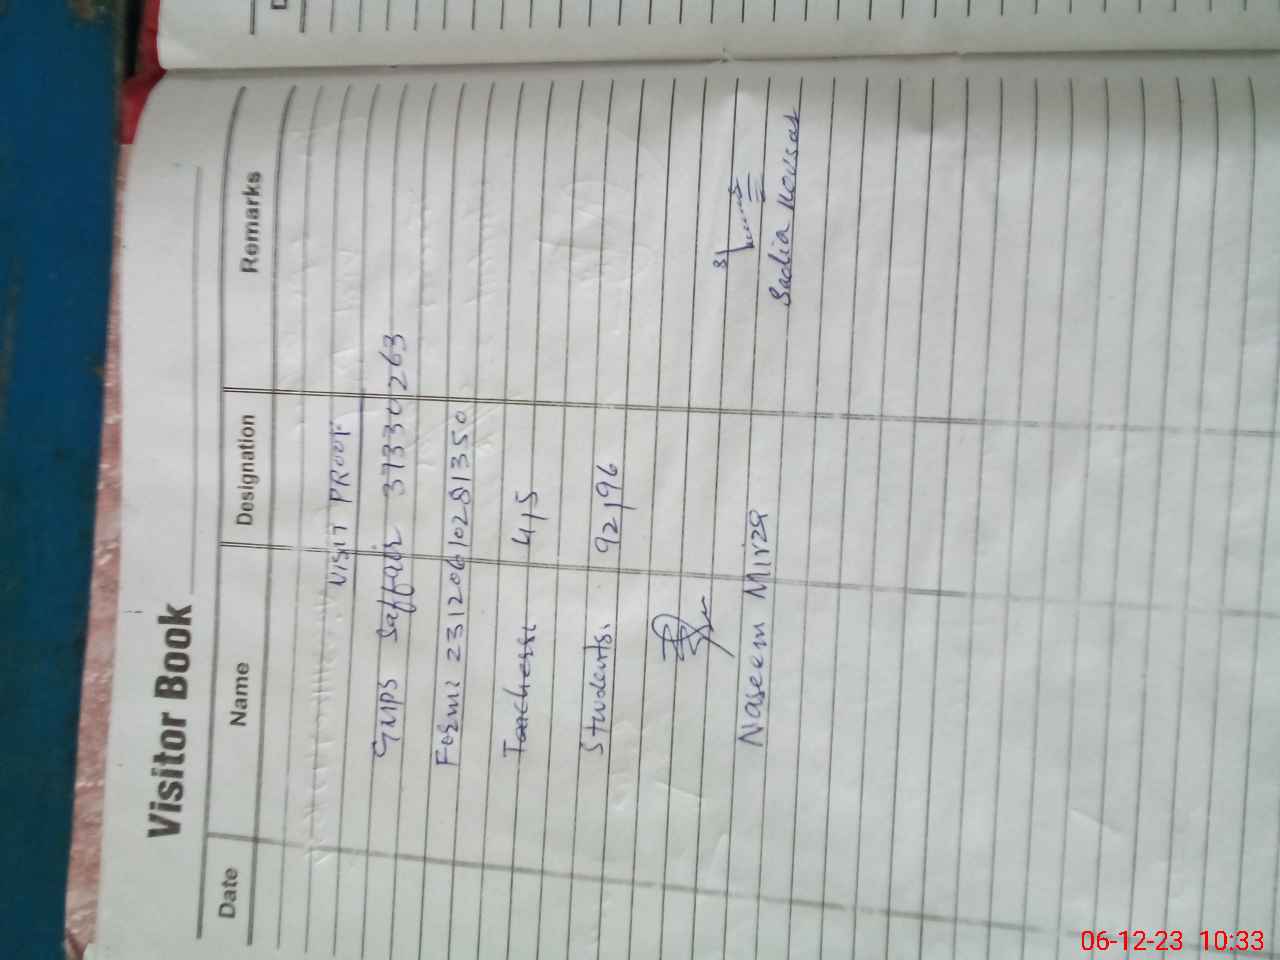 Visitor Book
Date Name Designation Remarks
VISIT PROOF
GMPS Saffair 37330263
Form: 23120610281350
Teachers: 4/5
Students: 92/96
Naseem Mirza
Sadia Kousar
06-12-23 10:33